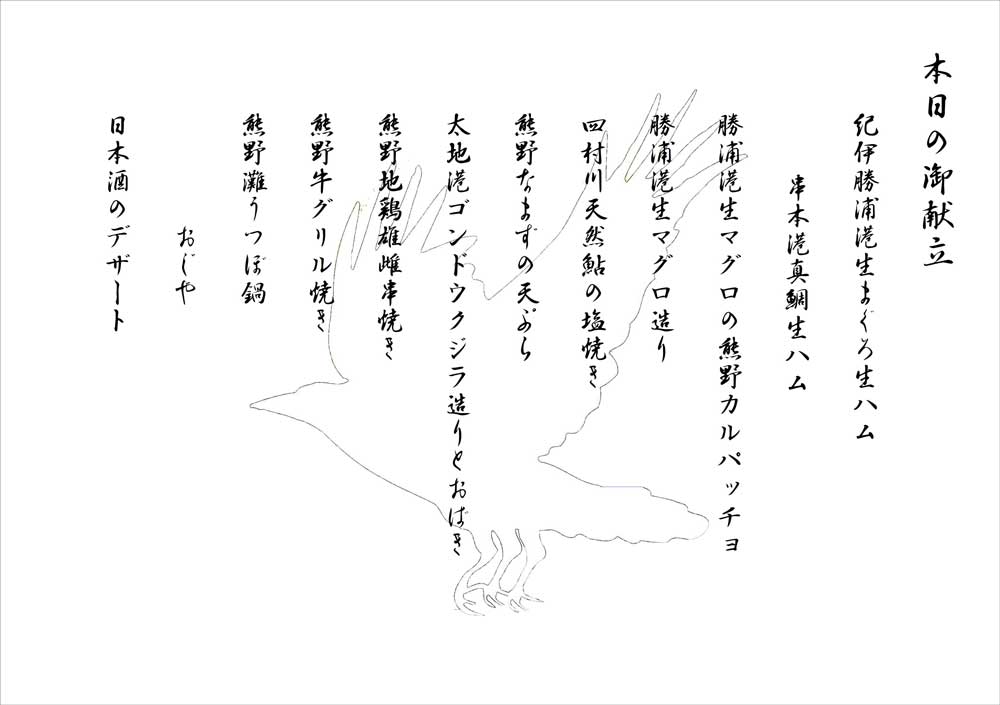 本日の御献立
紀伊勝浦港生まぐろ生ハム
串本港真鯛生ハム
勝浦港生マグロの熊野カルパッチョ
勝浦港生マグロ造り
四村川天然鮎の塩焼き
熊野なまずの天ぷら
太地港ゴンドウクジラ造りとおばき
熊野地鶏雄雌串焼き
熊野牛グリル焼き
熊野灘うつぼ鍋
おじや
日本酒のデザート